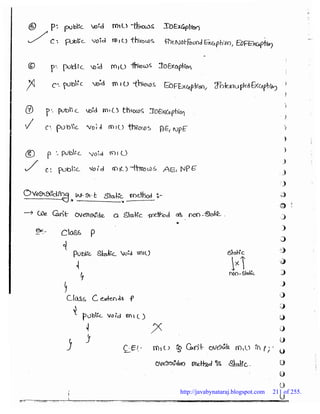 ⑤ P: public void m1() throws IOException
✓ C: public void m1() throws FileNotFoundException, EOFException
⑥ P: public void m1() throws IOException
✗ C: public void m1() throws EOFException, InterruptedException
⑦ P: public void m1() throws IOException
✓ C: public void m1() throws AE, NPE
⑧ P: public void m1()
✓ C: public void m1() throws AE, NPE
Overriding w.r.t static method :-
→ We Can't override a static method as non-static.
Ex:- Class P
{
public static void m1()
{
}
}
static
↓✗↑
non-static
Class C extends P
{
public void m1()
{
}
}
✗
C.E:- m1() in C Can't override m1() in P;
overridden method is static.
http://javabynataraj.blogspot.com 211 of 255.